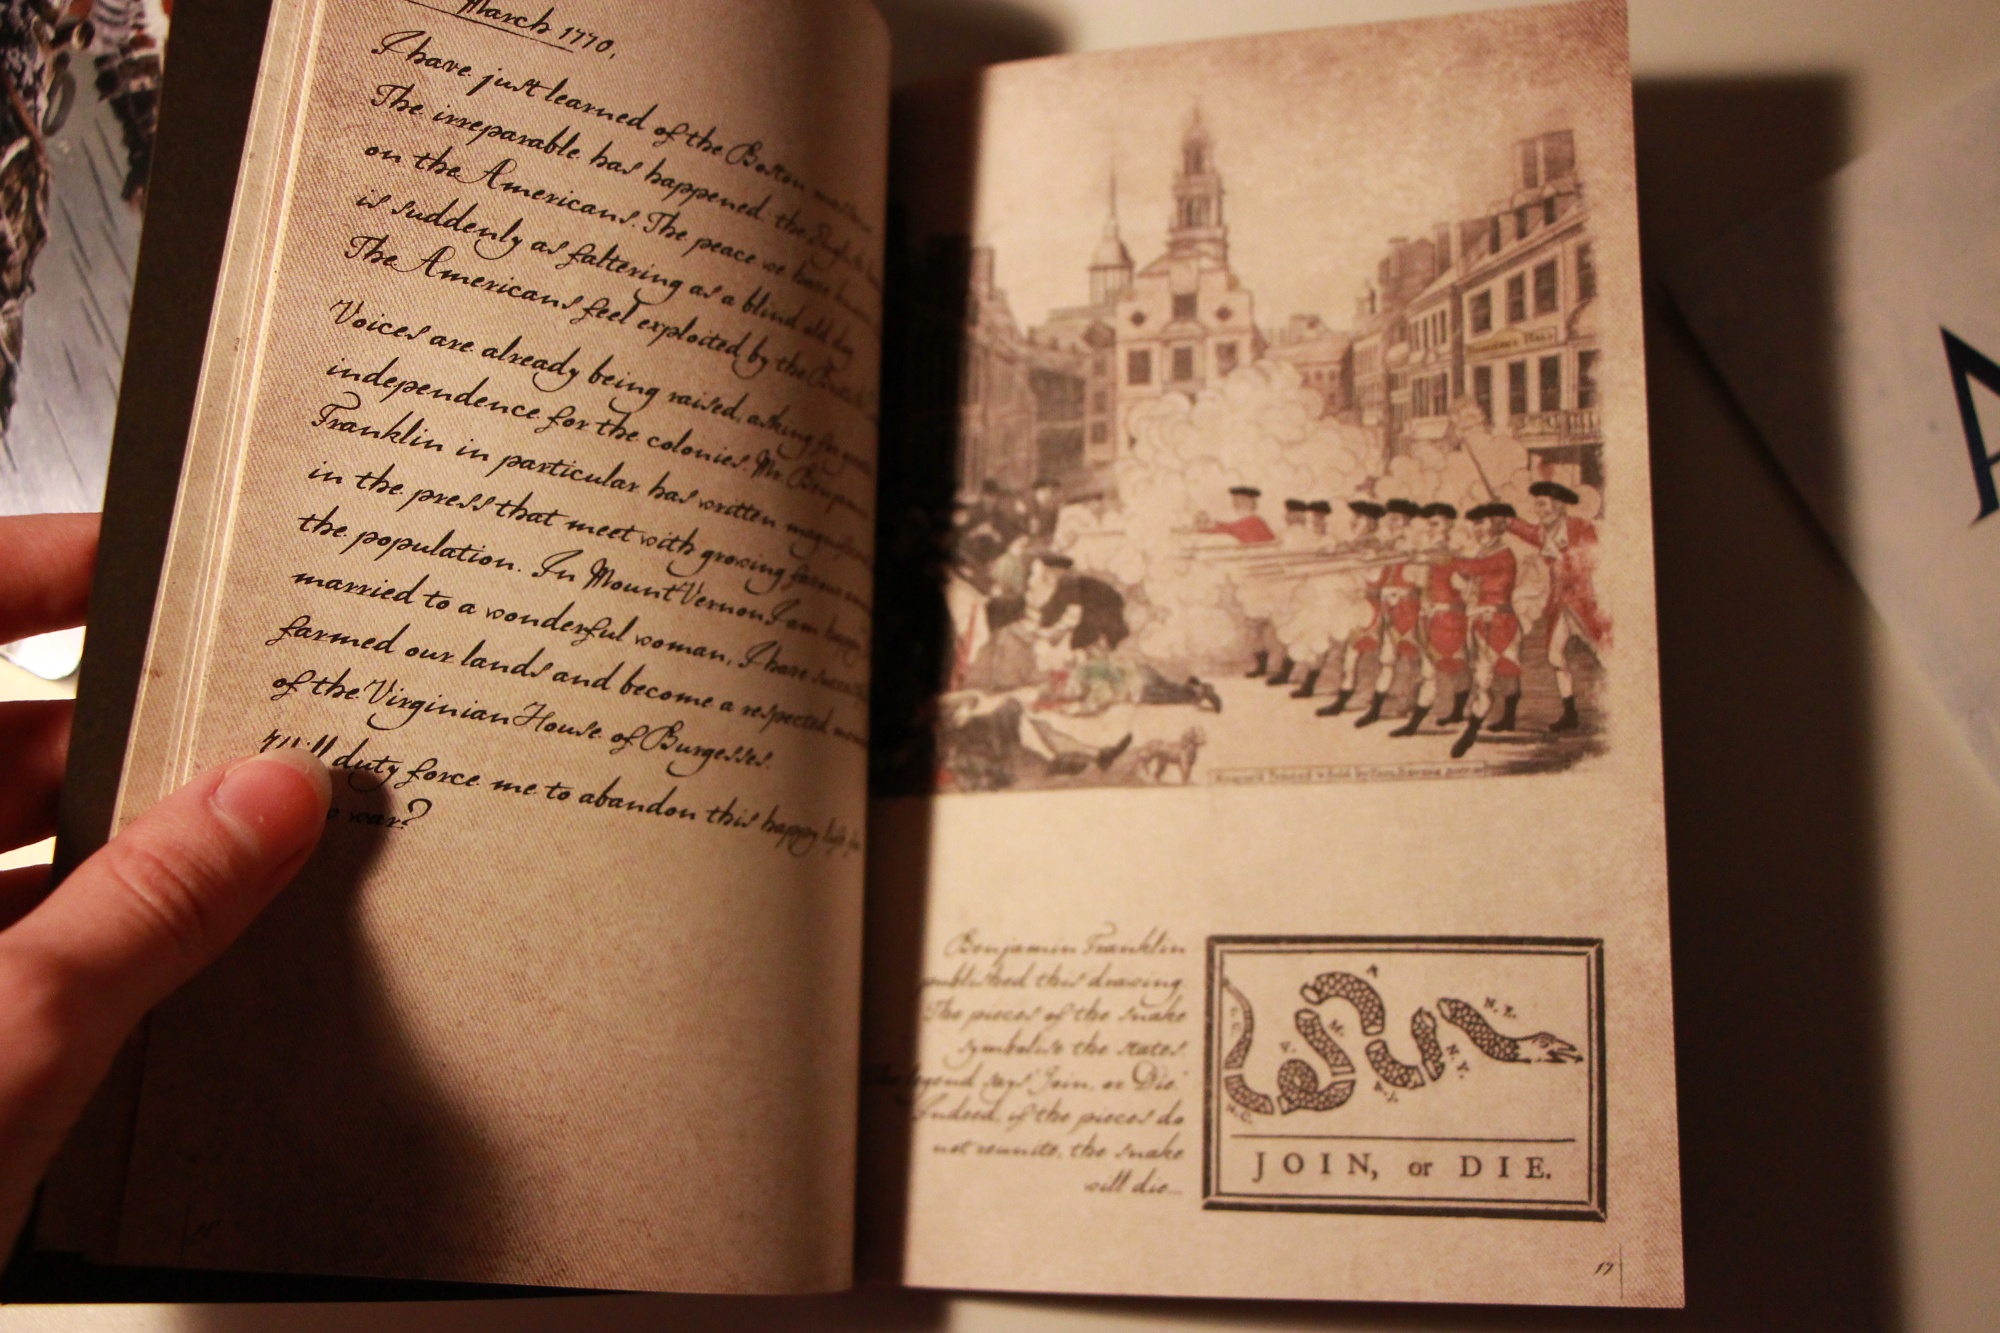 March 1770,
I have just learned of the Boston
The irreparable has happened: the English
on the Americans. The peace we have known
is suddenly as faltering as a blind old dog
The Americans feel exploited by the British
Voices are already being raised, asking for greater
independence for the colonies. Mr. Benjamin
Franklin in particular has written magnificent
in the press that meet with growing favour among
the population. In Mount Vernon I am happy
married to a wonderful woman, I have
farmed our lands and become a respected
of the Virginian House of Burgesses.
duty force me to abandon this happy life for
war?
Benjamin Franklin
published this drawing.
The pieces of the snake
symbolise the states.
legend says "Join, or Die."
Indeed, if the pieces do
not reunite, the snake
will die...
N.E.
N.Y.
N.J.
M.
V.
N.C.
JOIN, or DIE.
17
A